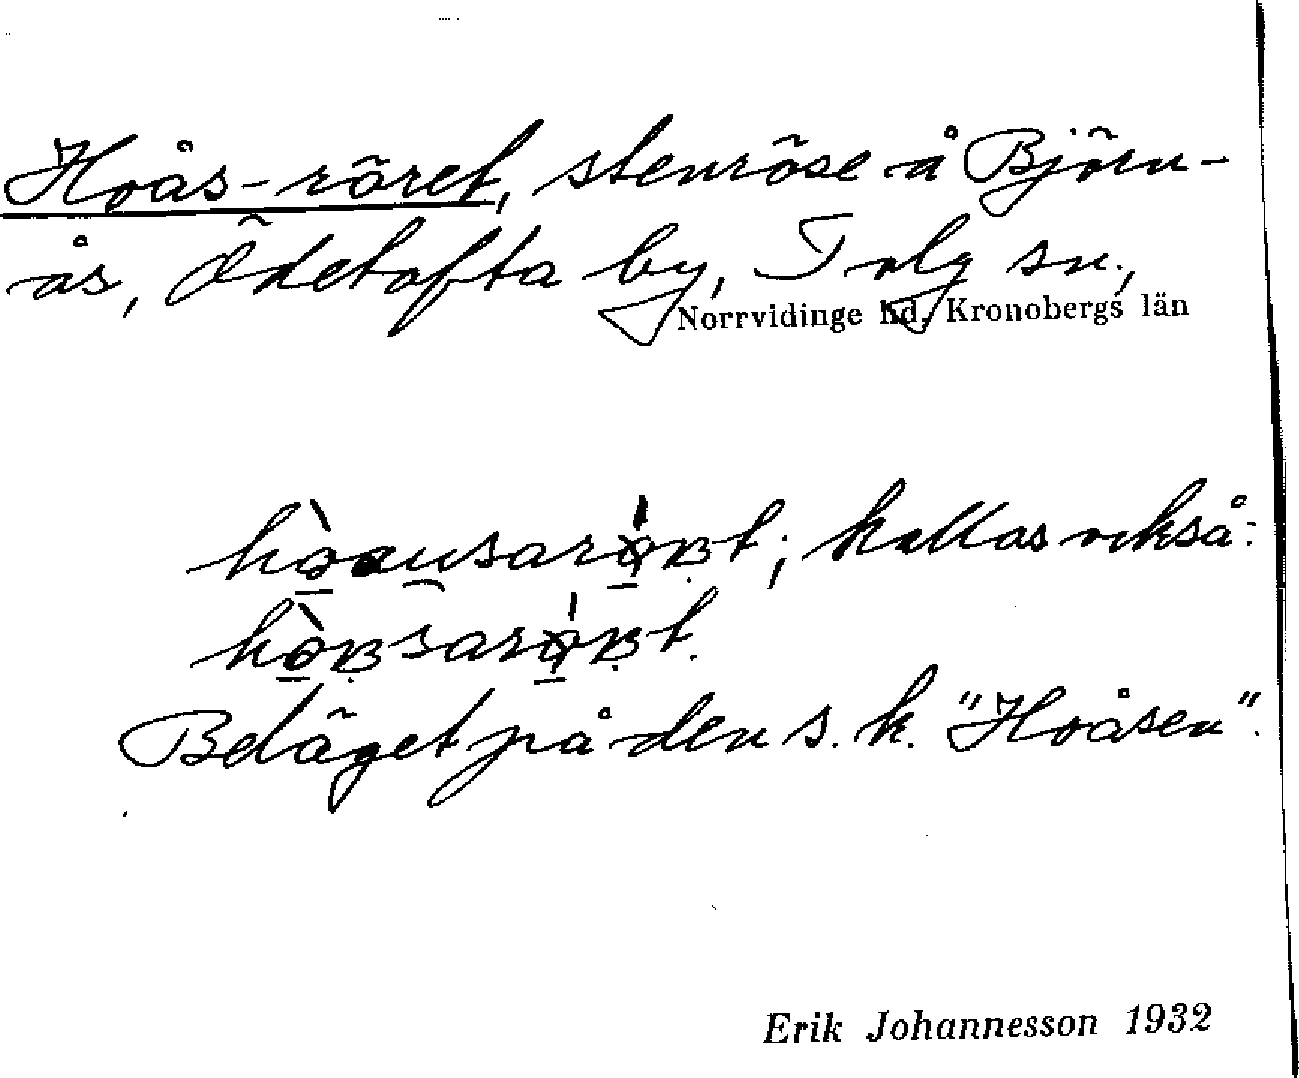 Hoås-röret, stenröse å Björn-
ås, Ödetofta by, Tolg sn.,
Norrvidinge hd. Kronobergs län
kallas också:
Beläget på den s. k. "Hoåsen".
Erik Johannesson 1932